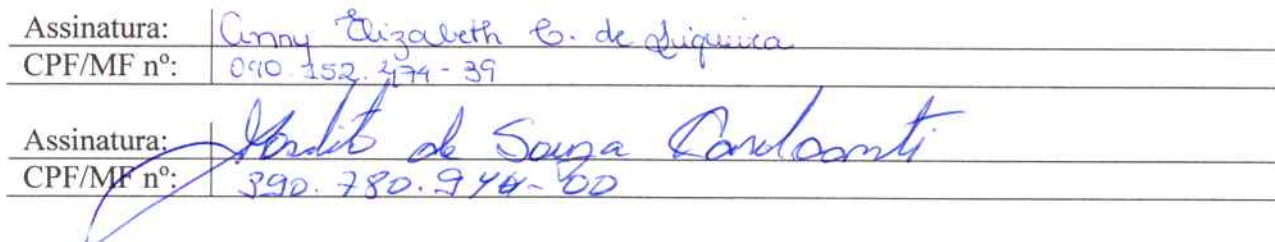 Assinatura: Anny Elizabeth C. de Siqueira
CPF/MF nº: 090.152.474-39
Assinatura: de Souza
CPF/MF nº: 390.780.944-00